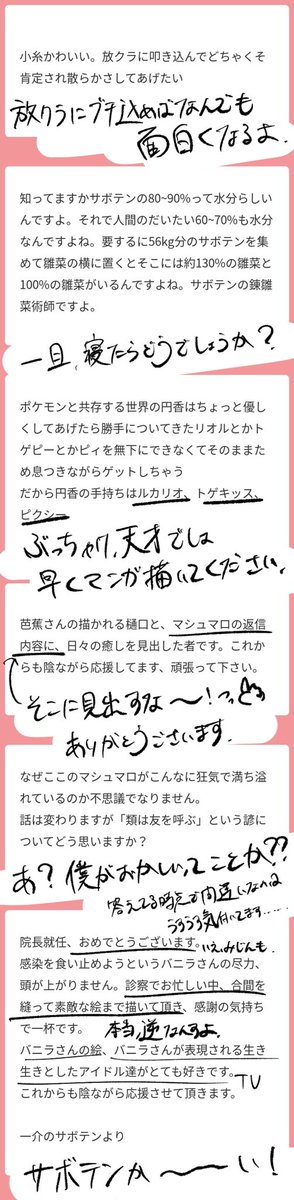 小糸かわいい。放クラに叩き込んでどちゃくそ
肯定され散らかさしてあげたい
放クラにブチ込めばなんでも
面白くなるよ.
知ってますかサボテンの80~90%って水分らしい
んですよ。それで人間のだいたい60~70%も水分
なんですよね。要するに56kg分のサボテンを集
めて雛菜の横に置くとそこには約130%の雛菜と
100%の雛菜がいるんですよね。サボテンの錬雛
菜術師ですよ。
一旦、寝たらどうでしょうか?
ポケモンと共存する世界の円香はちょっと優し
くしてあげたら勝手についてきたリオルとかト
ゲピーとかピィを無下にできなくてそのままた
め息つきながらゲットしちゃう
だから円香の手持ちはルカリオ、トゲキッス、
ピクシー
ぶっちゃけ、天才では
早くマンガ描いてください、
芭蕉さんの描かれる樋口と、マシュマロの返信
内容に、日々の癒しを見出した者です。これか
らも陰ながら応援してます、頑張って下さい。
そこに見出すな〜!
ありがとうございます.
なぜここのマシュマロがこんなに狂気で満ち溢
れているのか不思議でなりません。
話は変わりますが「類は友を呼ぶ」という諺に
ついてどう思いますか?
あ?僕がおかしいってことか??
答えてる時点で間違いないへは
うすうす気付いてます……
院長就任、おめでとうございます。いえ、みじんも.
感染を食い止めようというバニラさんの尽力、
頭が上がりません。診察でお忙しい中、合間を
縫って素敵な絵まで描いて頂き、感謝の気持ち
で一杯です。本当、逆なんすよ.
バニラさんの絵、バニラさんが表現される生き
生きとしたアイドル達がとても好きです。TV
これからも陰ながら応援させて頂きます。
一介のサボテンより
サボテンか〜い!